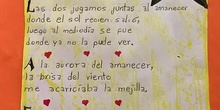 Las dos jugamos juntas al amanecer
donde el sol recien salió,
luego al mediodía se fue
donde ya no la pude ver.
A la aurora del amanecer,
la brisa del viento
me acariciaba la mejilla.